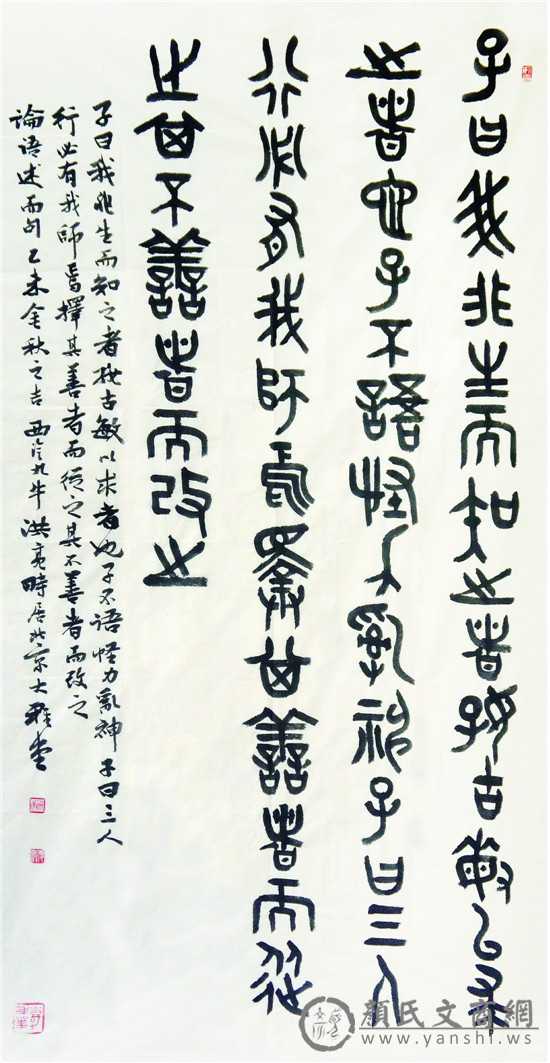 子曰我非生而知之者好古敏以求
之者也子不語怪力亂神子曰三人
行必有我師焉擇其善者而從
之其不善者而改之
子曰我非生而知之者好古敏以求者也子不语怪力亂神子曰三人
行必有我師焉擇其善者而從之其不善者而改之
论语述而句乙未金秋之吉西泠牛洪亮時居北京大雅堂
顏氏文商網
www.yanshi.ws